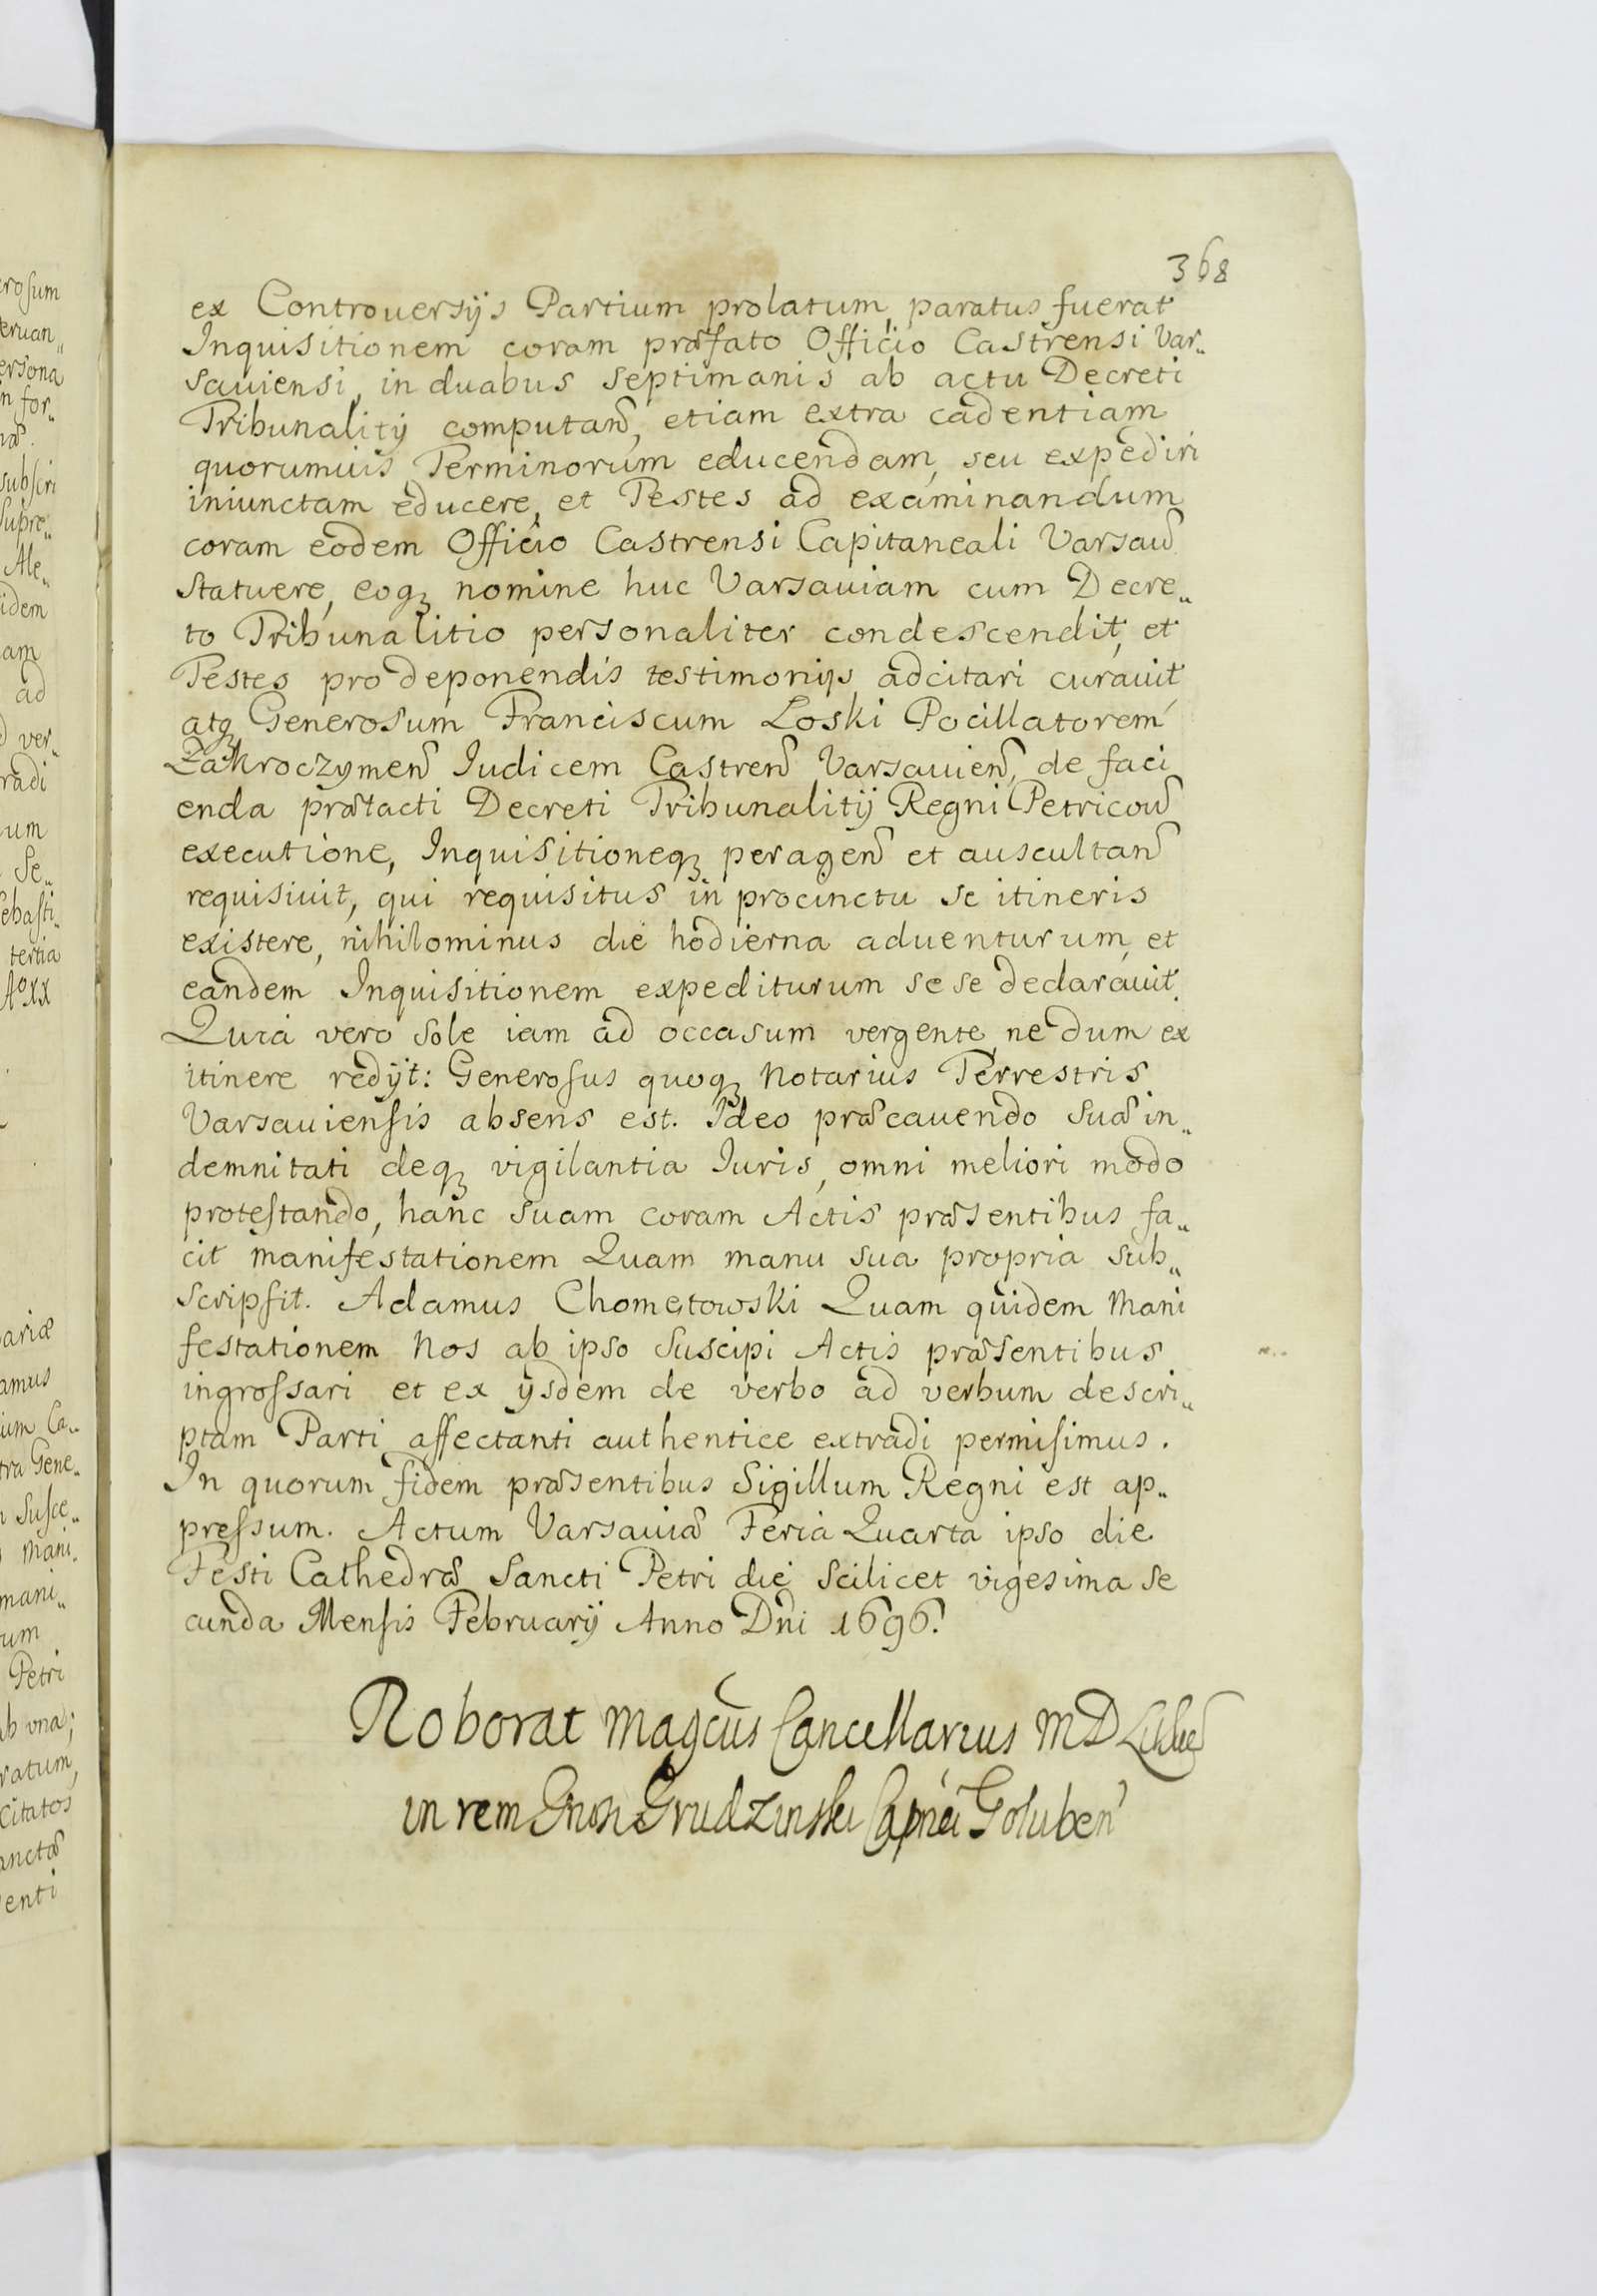 368
ex Controuersijs Partium prolatum, paratus fuerat
Inquisitionem coram præfato Officio Castrensi Var„
sauiensi, in duabus septimanis ab actu Decreti
Tribunalitij computan̄, etiam extra cadentiam
quorumuis Terminorum educendam, seu expediri
iniunctam educere, et Testes ad examinandum
coram eodem Officio Castrensi Capitaneali Varsau̅
statuere, eoq₃ nomine huc Varsauiam cum Decre„
to Tribunalitio personaliter condescendit, et
Testes pro deponendis testimonijs adcitari curauit
atq₃ Generosum Franciscum Loski Pocillatorem
Zakroczymen̄ Iudicem Castren̄ Varsauien̄, de faci
enda prætacti Decreti Tribunalitij Regni Petricou̅
executione, Inquisitioneq₃ peragen̄ et auscultan̄
requisiuit, qui requisitus in procinctu se itineris
existere, nihilominus die hodierna aduenturum, et
eandem Inquisitionem expediturum se se declarauit.
Quia vero sole iam ad occasum vergente, nedum ex
itinere redijt: Generosus quoq₃ Notarius Terrestris
Varsauiensis absens est. Ideo præcauendo suæ in„
demnitati deq₃ vigilantia Iuris, omni meliori modo
protestando, hanc suam coram Actis præsentibus fa„
cit manifestationem Quam manu sua propria sub„
scripsit. Adamus Chometowski Quam quidem Mani
festationem Nos ab ipso suscipi Actis præsentibus
ingrossari et ex ijsdem de verbo ad verbum descri„
ptam Parti affectanti authentice extradi permisimus.
In quorum fidem præsentibus Sigillum Regni est ap„
pressum. Actum Varsauiæ Feria Quarta ipso die
Festi Cathedræ Sancti Petri die scilicet vigesima se
cunda Mensis Februarij Anno Dn̄i 1696.
Roborat Magcūs Cancellarius MD
in rem Grudzinski Capnei Goluben̄
erosum
ersona
for„
subscri
supre„
Ale„
idem
am
ad
ver„
radi
um
Se„
ebasti„
tertia
Aº XX
ariæ
amus
ium Ca„
tra Gene„
Susce„
Mani„
mani„
rum
Petri
ab vna;
ratum,
citatos
anctæ
enti